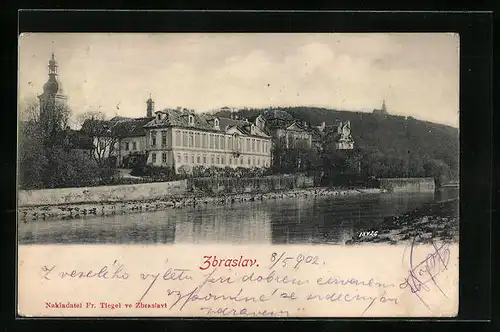 13426
Zbraslav. 8/5 902.
Z veselého výletu při dobrém
Vzpomíná se srdečným
zdravem
Nakladatel Fr. Tiegel ve Zbraslavi